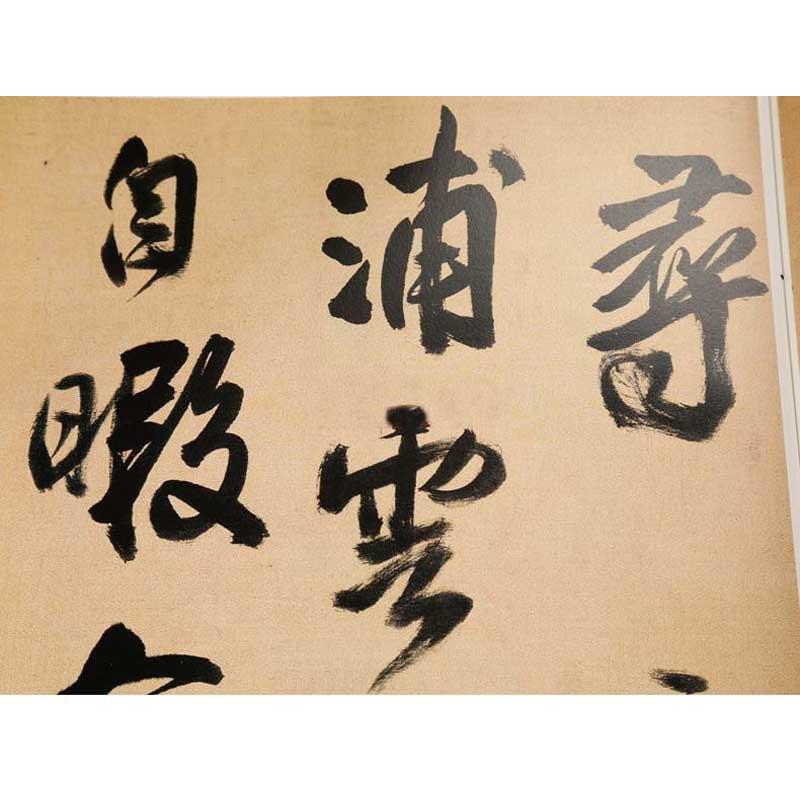 尋
浦雲
自暇